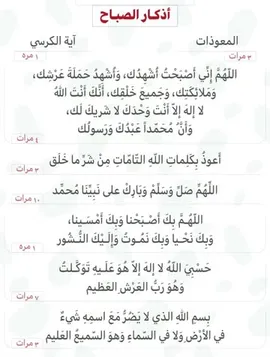 أذكار الصباح
المعوذات
آية الكرسي
٣ مرات
١ مره
اللّهُمَّ إِنِّي أَصْبَحْتُ أُشْهِدُك، وَأُشْهِدُ حَمَلَةَ عَرْشِك،
وَمَلائِكَتِك، وَجَميعَ خَلْقِك، أَنَّكَ أَنْتَ اللهُ
لا إلهَ إلاّ أَنْتَ وَحْدَكَ لا شَريكَ لَك،
وَأَنَّ مُحَمّداً عَبْدُكَ وَرَسولُك
٤ مرات
أَعوذُ بِكَلِماتِ اللّهِ التّامّاتِ مِنْ شَرِّ ما خَلَق
٣ مرات
اللَّهُمَّ صَلِّ وَسَلِّمْ وَبَارِكْ على نَبِيِّنَا مُحمَّد
١٠ مرات
اللّهُـمَّ بِكَ أَصْـبَحْنا وَبِكَ أَمْسَـينا،
وَبِكَ نَحْـيا وَبِكَ نَمُـوتُ وَإِلَـيْكَ النُّـشُور
١ مره
حَسْبِيَ اللّهُ لا إلهَ إلاّ هُوَ عَلَـيهِ تَوَكَّـلتُ
وَهُوَ رَبُّ العَرْشِ العَظيم
٧ مرات
بِسمِ اللهِ الذي لا يَضُرُّ مَعَ اسمِهِ شَيءٌ
في الأرْضِ وَلا في السّماءِ وَهوَ السّميعُ العَليم
٣ مرات